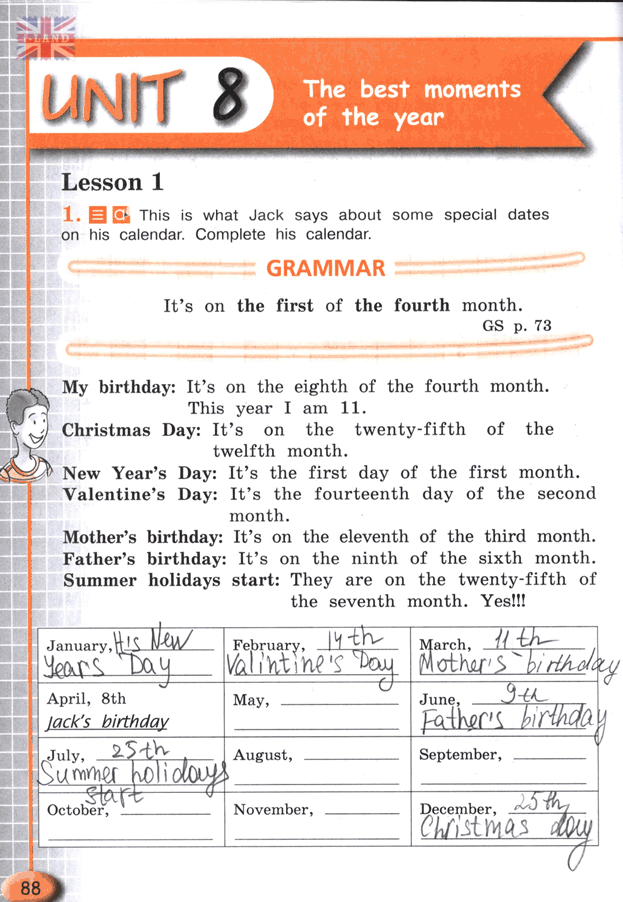 i-LAND
UNIT 8
The best moments
of the year
Lesson 1
1. This is what Jack says about some special dates
on his calendar. Complete his calendar.
GRAMMAR
It's on the first of the fourth month.
GS p. 73
My birthday: It's on the eighth of the fourth month.
This year I am 11.
Christmas Day: It's on the twenty-fifth of the
twelfth month.
New Year's Day: It's the first day of the first month.
Valentine's Day: It's the fourteenth day of the second
month.
Mother's birthday: It's on the eleventh of the third month.
Father's birthday: It's on the ninth of the sixth month.
Summer holidays start: They are on the twenty-fifth of
the seventh month. Yes!!!
January, It's New
Years Day
February, 14th
Valintine's Day
March, 11th
Mother's birthday
April, 8th
Jack's birthday
May,
June, 9th
Father's birthday
July, 25th
Summer holidays
start
August,
September,
October,
November,
December, 25th
Christmas day
88